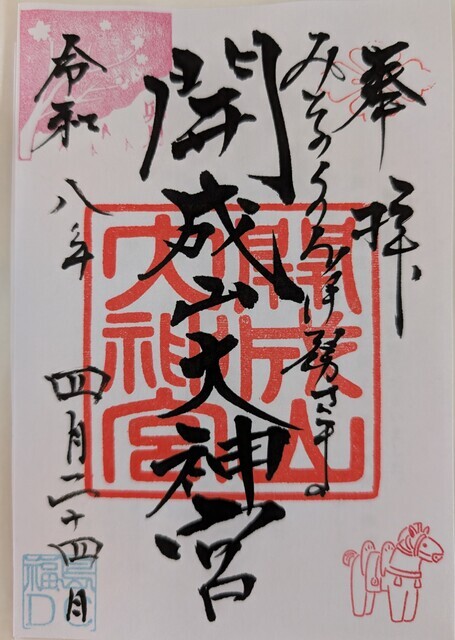 奉拝
みちのくのお伊勢さま
開成山大神宮
令和八年四月二十四日
開成山大神宮
福島DC